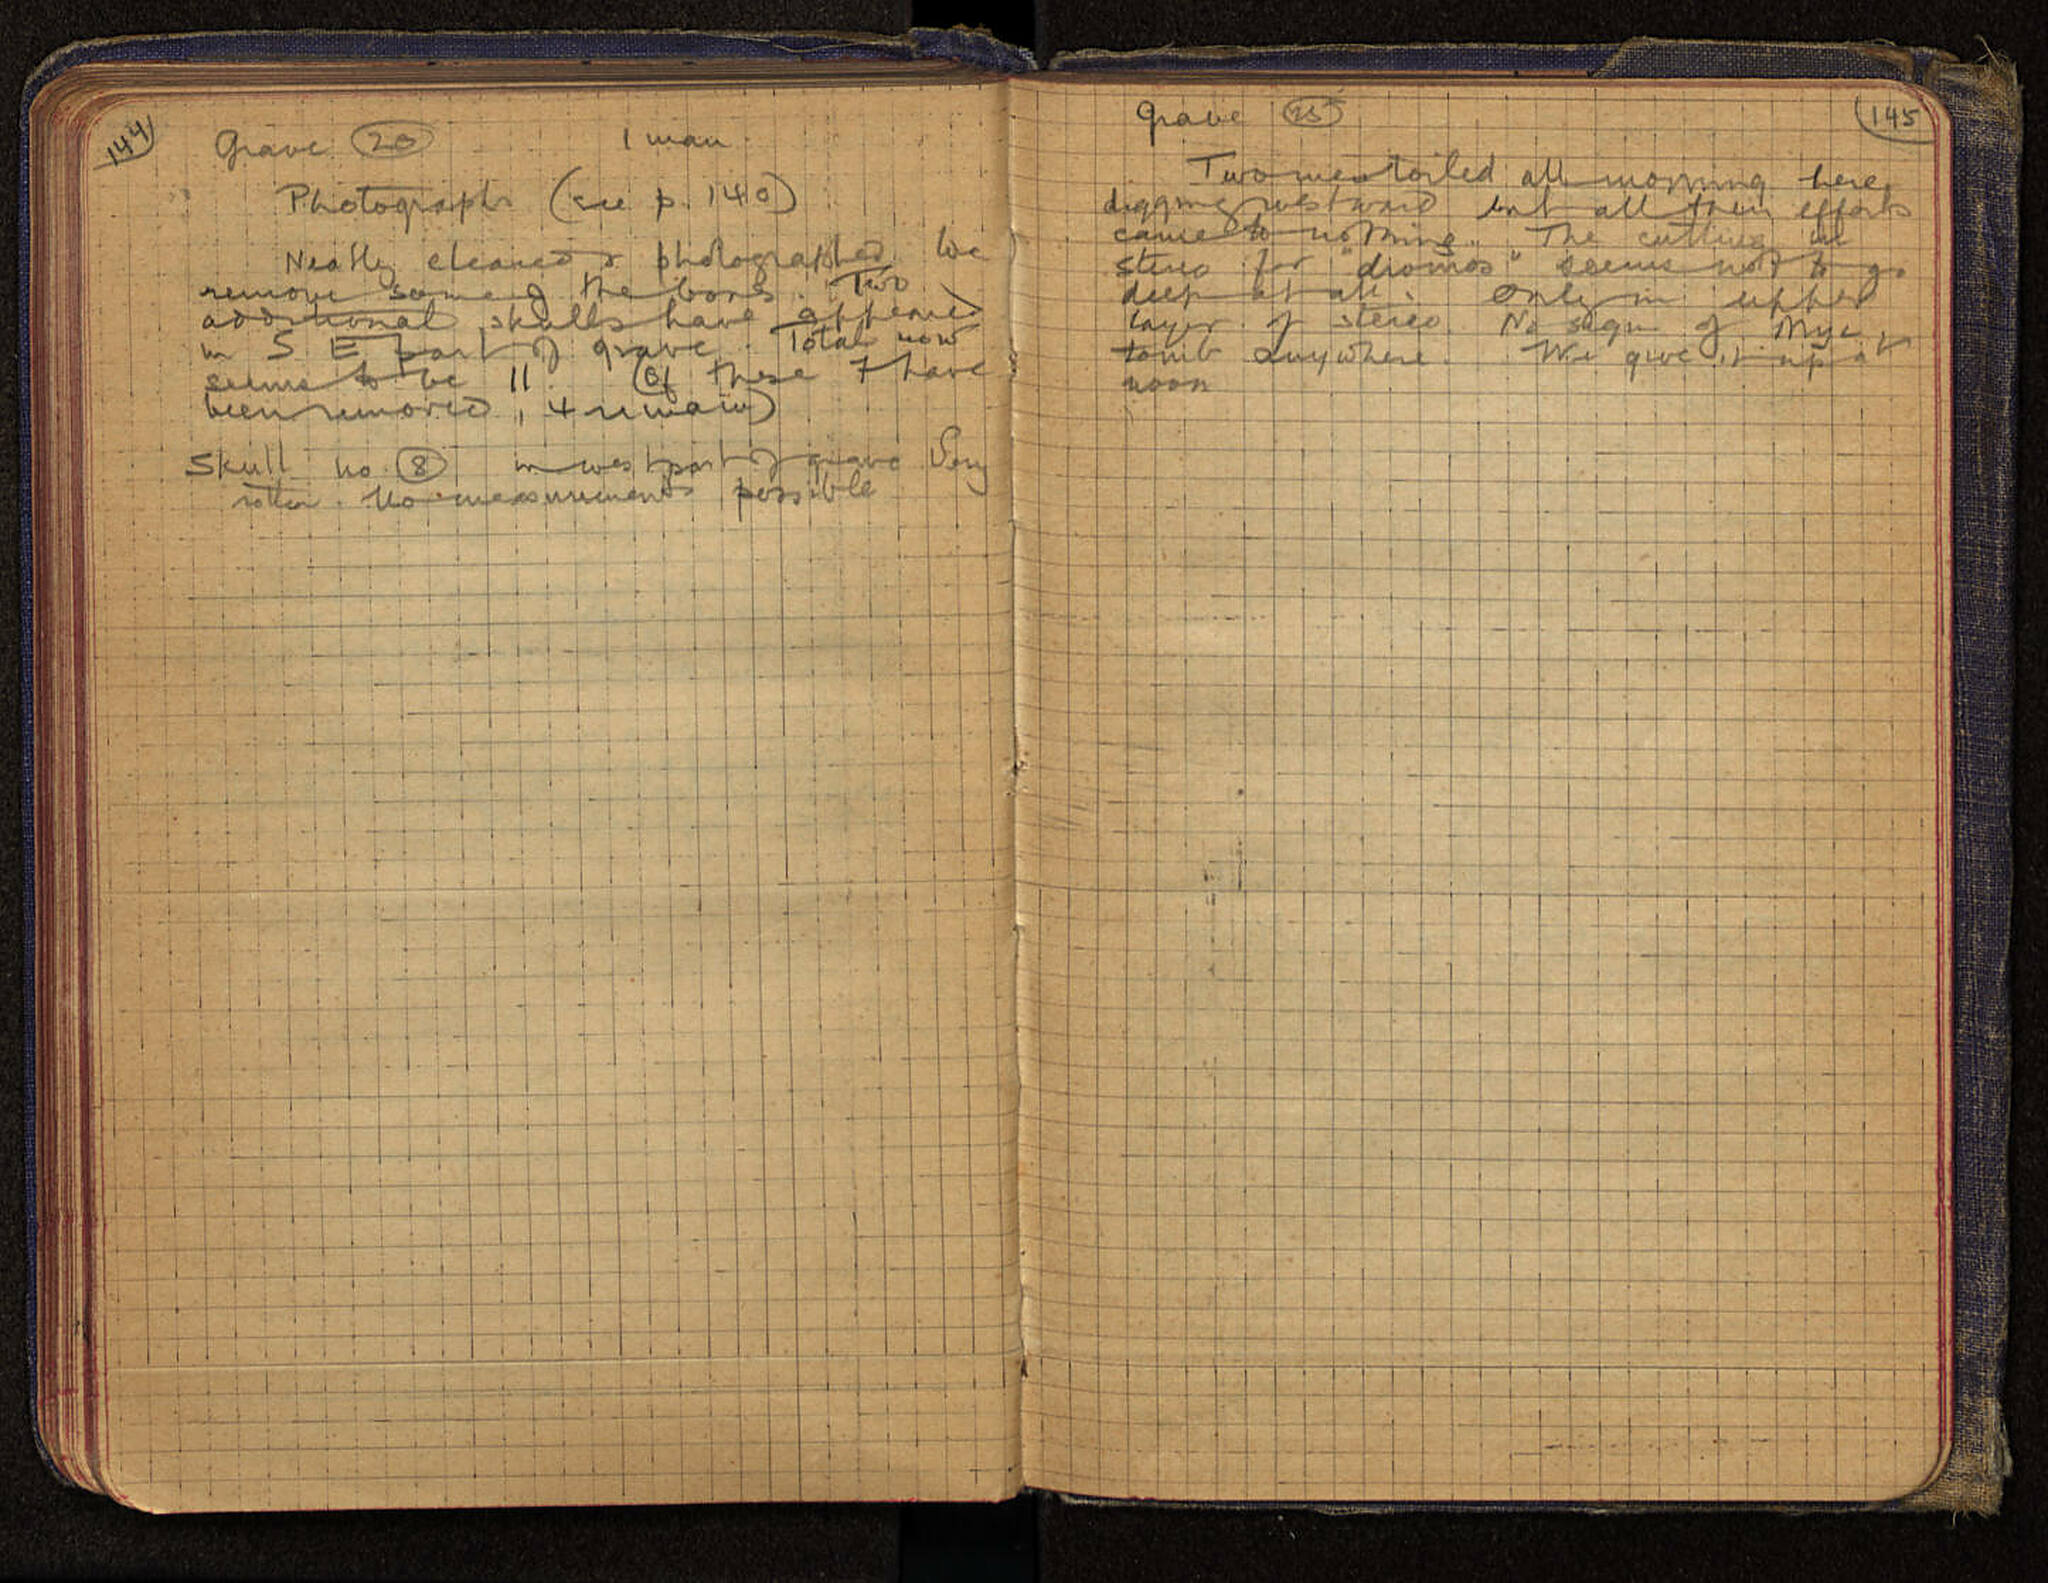 144
Grave 20 1 man
Photograph (see p. 140)
Neatly cleaned & photographed. We
remove some of the bones. Two
additional skulls have appeared
in S E part of grave. Total now
seems to be 11. (Of these 7 have
been removed, 4 remain)
Skull no. 8 in west part of grave Very
rotten. No measurements possible
145
Grave
Two men toiled all morning here,
digging westward but all their efforts
came to nothing. The cutting in
stereo for "dromos" seems not to go
deep at all. Only in upper
layer of stereo. No sign of Myc
tomb anywhere. We give it up at
noon